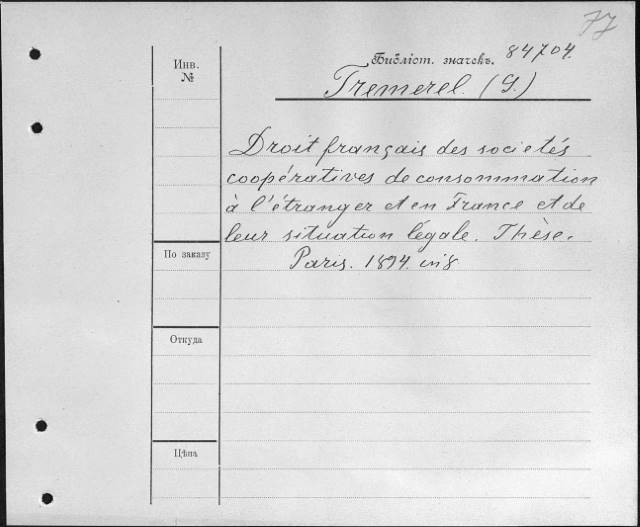 77
Инв. №
Библіот. значекъ. 84704.
Tremerel. (G.)
Droit français des societés
coopératives de consommation
à l'étranger et en France et de
leur situation légale. Thèse.
Paris. 1894. in 8
По заказу
Откуда
Цѣна